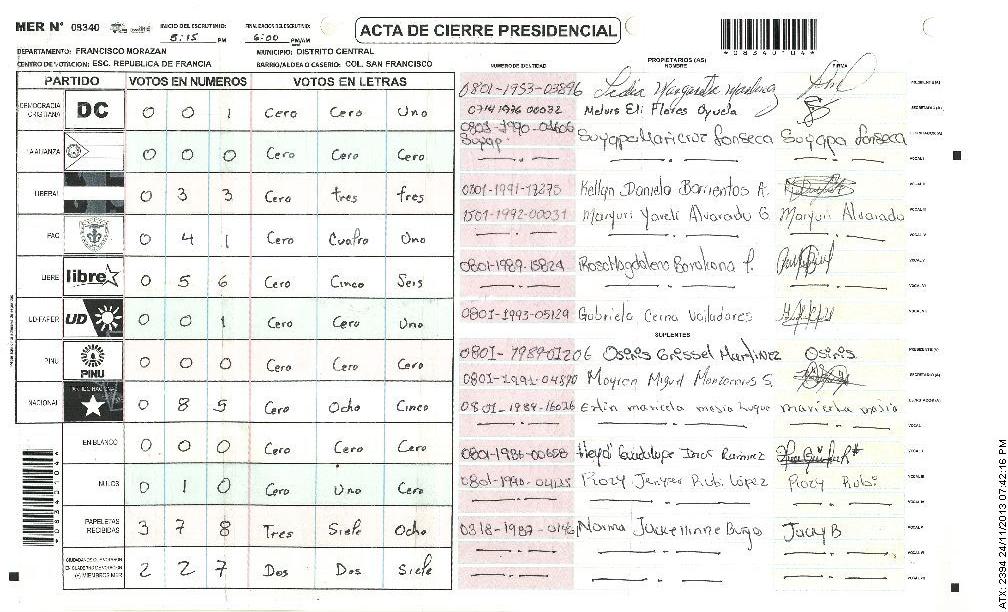 MER N° 08340
INICIO DEL ESCRUTINIO: 5:15 PM
FINALIZACION DEL ESCRUTINIO: 6:00 PM/AM
ACTA DE CIERRE PRESIDENCIAL
*08340104*
DEPARTAMENTO: FRANCISCO MORAZAN
MUNICIPIO: DISTRITO CENTRAL
CENTRO DE VOTACION: ESC. REPUBLICA DE FRANCIA
BARRIO/ALDEA O CASERIO: COL. SAN FRANCISCO
PARTIDO VOTOS EN NUMEROS VOTOS EN LETRAS
DEMOCRACIA CRISTIANA DC 0 0 1 Cero Cero Uno
LA ALIANZA 0 0 0 Cero Cero Cero
LIBERAL 0 3 3 Cero tres tres
PAC 0 4 1 Cero Cuatro Uno
LIBRE libre 0 5 6 Cero Cinco Seis
UD-FAPER UD 0 0 1 Cero Cero Uno
PINU PINU 0 0 0 Cero Cero Cero
NACIONAL 0 8 5 Cero Ocho Cinco
EN BLANCO 0 0 0 Cero Cero Cero
NULOS 0 1 0 Cero Uno Cero
PAPELETAS RECIBIDAS 3 7 8 Tres Siete Ocho
2 2 7 Dos Dos Siete
NUMERO DE IDENTIDAD
PROPIETARIOS (AS)
NOMBRE
FIRMA
0801-1953-03896 Lidia Margarita PRESIDENTE (A)
0714 1976 00032 Melvis Eli Flores Oyuela SECRETARIO (A)
Suyapa Maricruz Fonseca Suyapa Fonseca
0801-1991-17275 Kellyn Daniela Barrientos A.
1501-1992-00031 Maryuri Yareli Alvarado G. Maryuri Alvarado
0801-1989-15824
0801-1993-05129 Gabriela Cerna Valladares
SUPLENTES
0801-1989-01206 Osiris Grissel Martinez Osiris PRESIDENTE (A)
0801-1991-04870 SECRETARIO (A)
0801-1989-16026 Erlin maricela
Guadalupe
Rubi López Rubi
Norma Jackeline Jacky B
ATX: 2394 24/11/2013 07:42:16 PM